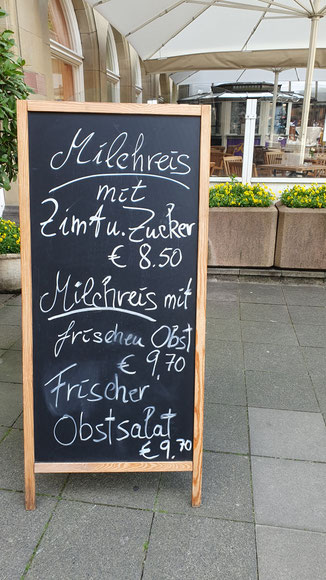 Milchreis
mit
Zimt u. Zucker
€ 8.50
Milchreis mit
frischen Obst
€ 9,70
Frischer
Obstsalat
€ 9,70